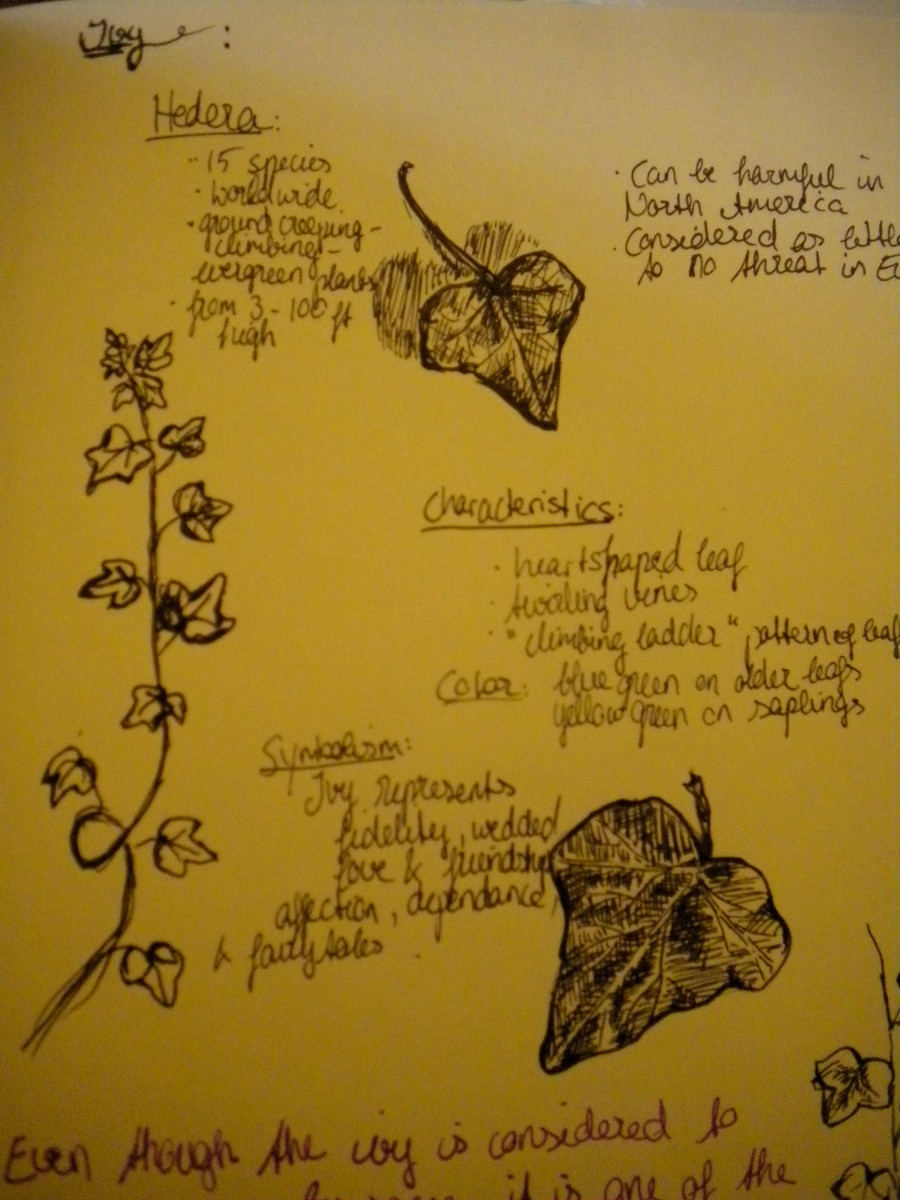 Ivy :
Hedera:
· 15 species
· worldwide
· ground creeping -
climbing -
evergreen plants
· from 3 - 100 ft
high
· Can be harmful in
North America
· Considered as little
to no threat in
Characteristics:
· heartshaped leaf
· twirling vines
· "climbing ladder" pattern of leaf
Color: blue green on older leafs
yellow green on saplings
Symbolism:
Ivy represents
fidelity, wedded
love & friendship
affection, dependance,
& fairy tales.
Even though the ivy is considered to
it is one of the